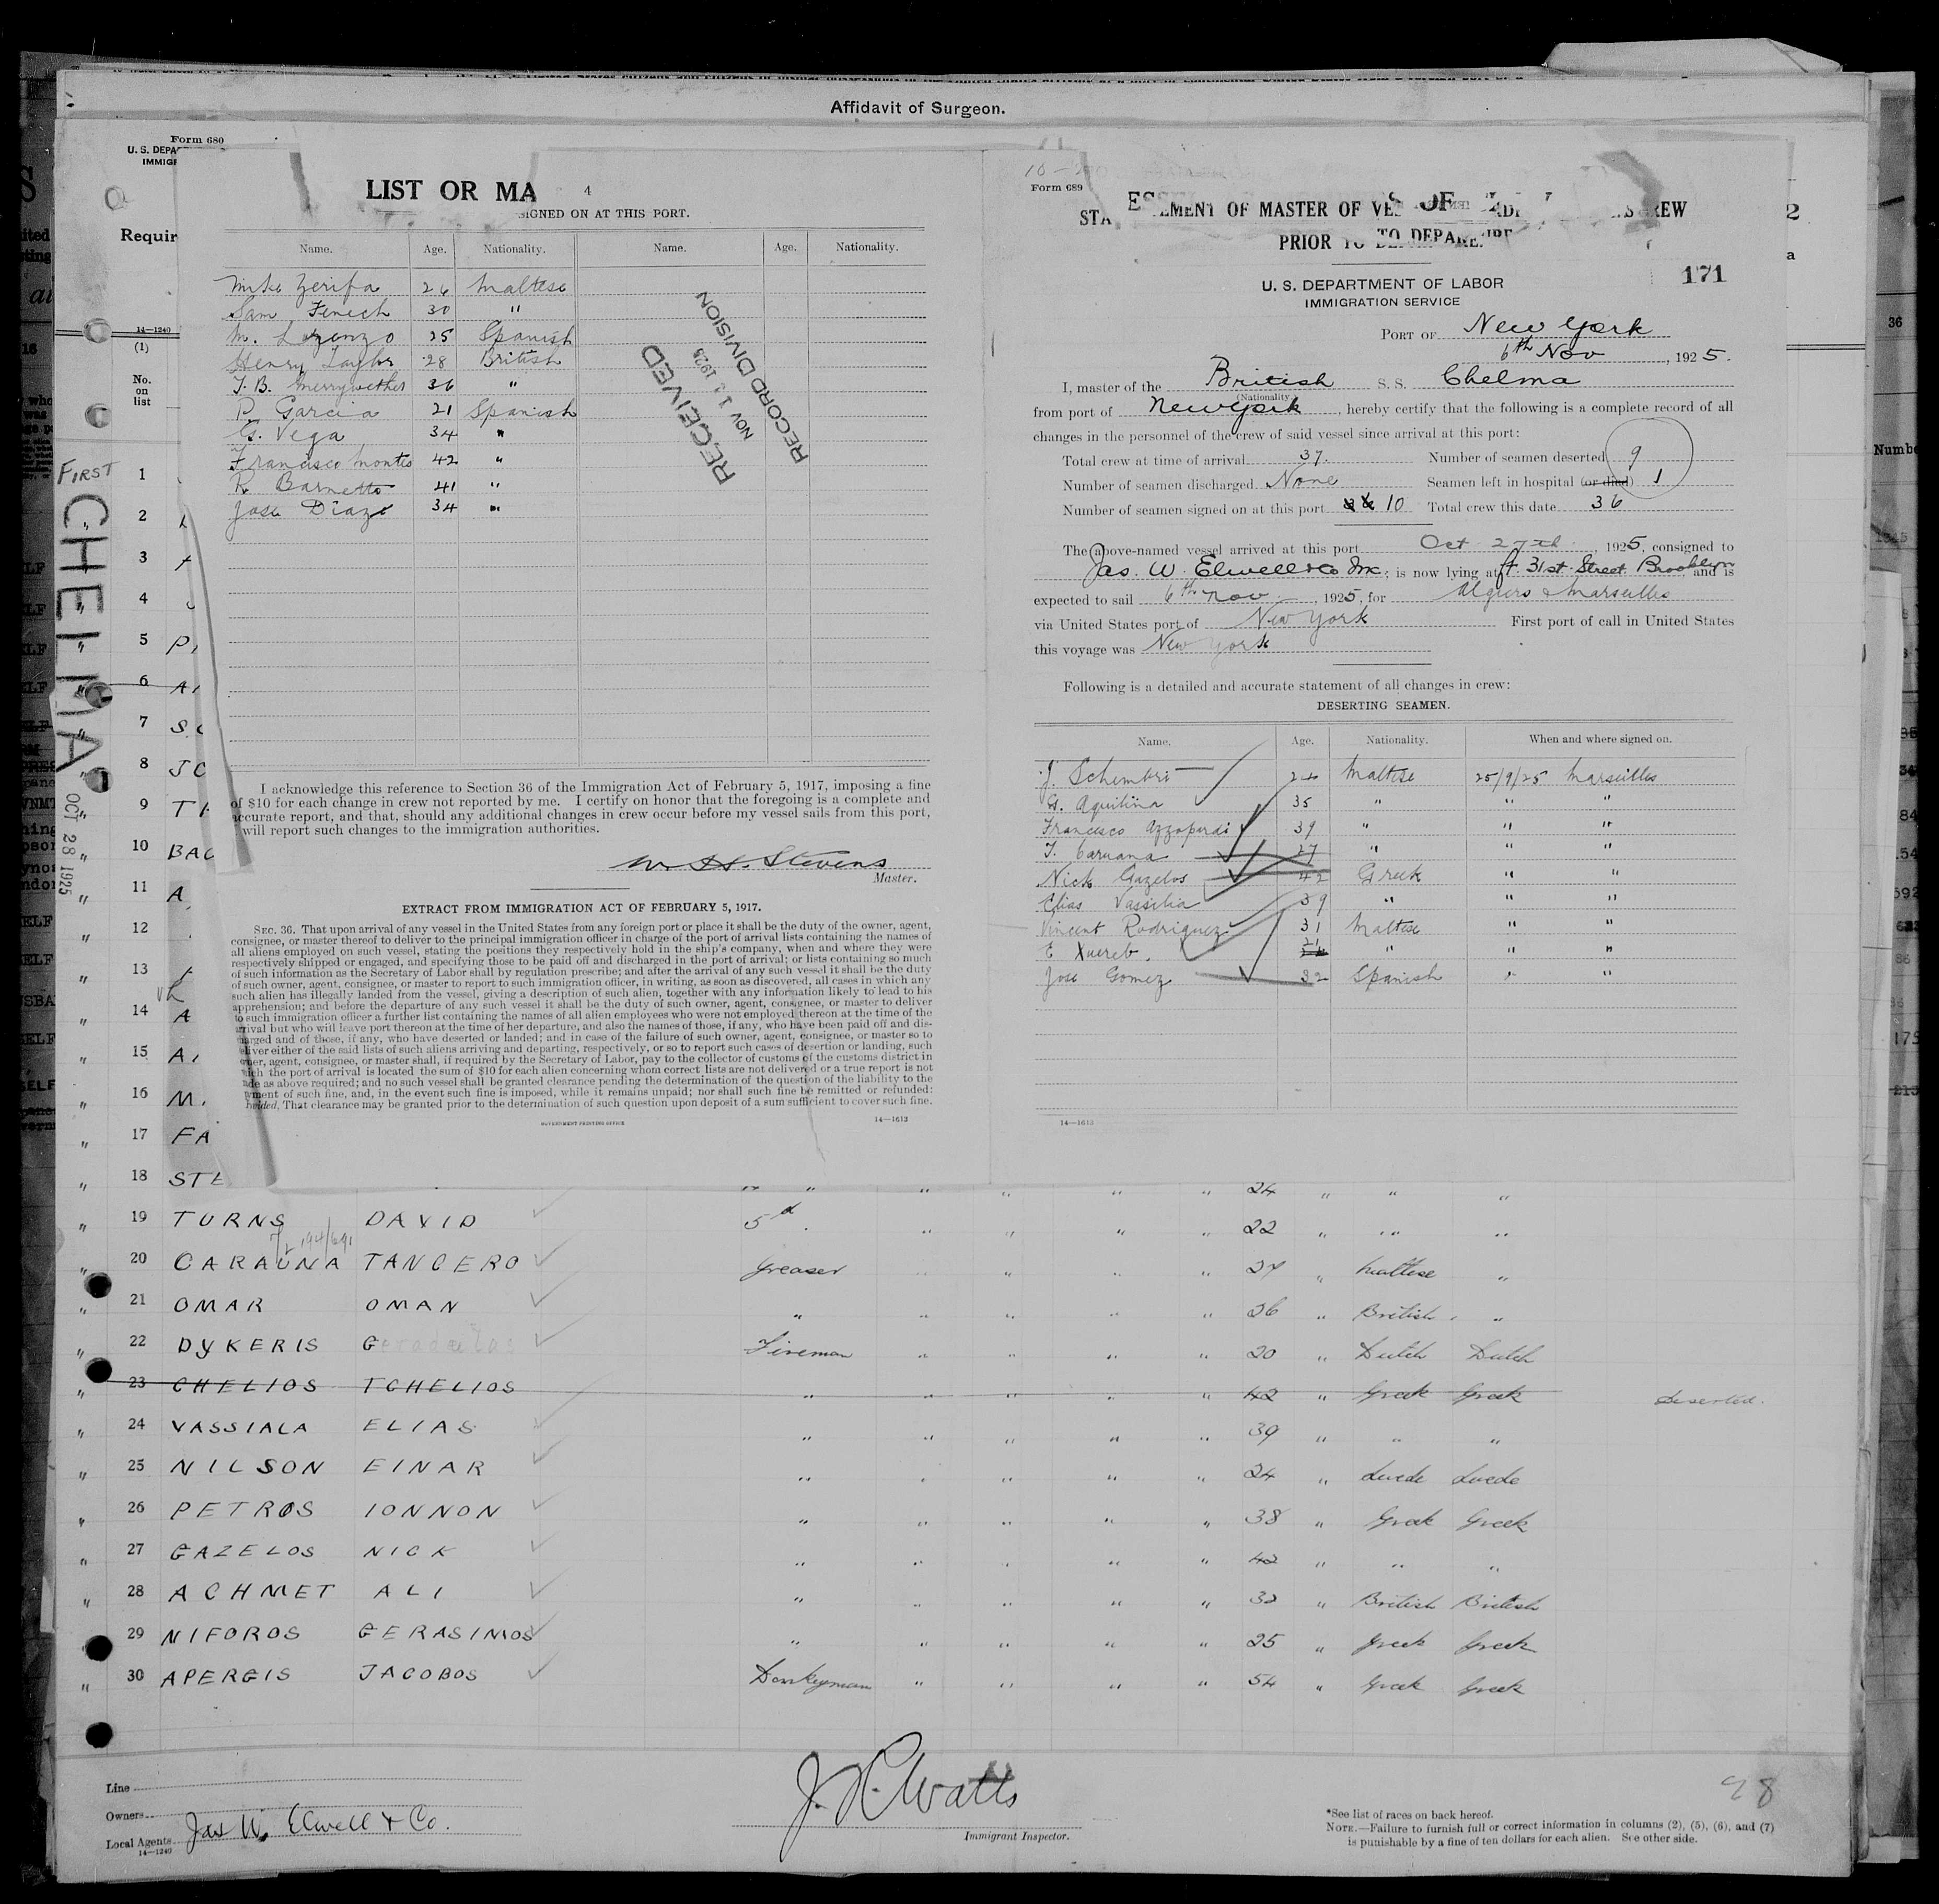 Affidavit of Surgeon.
Form 680
U. S. DEPA
IMMIGR
Requir
14—1240
(1)
No.
on
list
FIRST
CHELMA
OCT 28 1925
LIST OR MA 4
SIGNED ON AT THIS PORT.
Name. Age. Nationality. Name. Age. Nationality.
Mike Zerifa 26 Maltese
Sam Fenech 30 "
M. Lorenzo 25 Spanish
Henry Taylor 28 British
T. B. Merryweather 36 "
P. Garcia 21 Spanish
G. Vega 34 "
Francisco Montes 42 "
R. Barnetto 41 "
Jose Diaz 34 "
RECEIVED
NOV 1 1925
RECORD DIVISION
I acknowledge this reference to Section 36 of the Immigration Act of February 5, 1917, imposing a fine
of $10 for each change in crew not reported by me. I certify on honor that the foregoing is a complete and
accurate report, and that, should any additional changes in crew occur before my vessel sails from this port,
will report such changes to the immigration authorities.
W. H. Stevens
Master.
EXTRACT FROM IMMIGRATION ACT OF FEBRUARY 5, 1917.
SEC. 36. That upon arrival of any vessel in the United States from any foreign port or place it shall be the duty of the owner, agent,
consignee, or master thereof to deliver to the principal immigration officer in charge of the port of arrival lists containing the names of
all aliens employed on such vessel, stating the positions they respectively hold in the ship's company, when and where they were
respectively shipped or engaged, and specifying those to be paid off and discharged in the port of arrival; or lists containing so much
of such information as the Secretary of Labor shall by regulation prescribe; and after the arrival of any such vessel it shall be the duty
of such owner, agent, consignee, or master to report to such immigration officer, in writing, as soon as discovered, all cases in which any
such alien has illegally landed from the vessel, giving a description of such alien, together with any information likely to lead to his
apprehension; and before the departure of any such vessel it shall be the duty of such owner, agent, consignee, or master to deliver
to such immigration officer a further list containing the names of all alien employees who were not employed thereon at the time of the
arrival but who will leave port thereon at the time of her departure, and also the names of those, if any, who have been paid off and dis-
harged and of those, if any, who have deserted or landed; and in case of the failure of such owner, agent, consignee, or master so to
liver either of the said lists of such aliens arriving and departing, respectively, or so to report such cases of desertion or landing, such
ner, agent, consignee, or master shall, if required by the Secretary of Labor, pay to the collector of customs of the customs district in
ich the port of arrival is located the sum of $10 for each alien concerning whom correct lists are not delivered or a true report is not
de as above required; and no such vessel shall be granted clearance pending the determination of the question of the liability to the
yment of such fine, and, in the event such fine is imposed, while it remains unpaid; nor shall such fine be remitted or refunded:
vided, That clearance may be granted prior to the determination of such question upon deposit of a sum sufficient to cover such fine.
GOVERNMENT PRINTING OFFICE
14—1613
Form 689
STATEMENT OF MASTER OF VES OF CREW
PRIOR TO DEPARTURE
171
U. S. DEPARTMENT OF LABOR
IMMIGRATION SERVICE
PORT OF New York
6th Nov, 1925.
I, master of the British S. S. Chelma
(Nationality)
from port of New York, hereby certify that the following is a complete record of all
changes in the personnel of the crew of said vessel since arrival at this port:
Total crew at time of arrival 37. Number of seamen deserted 9
Number of seamen discharged None Seamen left in hospital (or died) 1
Number of seamen signed on at this port 10 Total crew this date 36
The above-named vessel arrived at this port Oct 27th, 1925, consigned to
Jas. W. Elwell & Co Inc; is now lying at ft 31st Street Brooklyn and is
expected to sail 6th Nov, 1925, for Algiers & Marseilles
via United States port of New York First port of call in United States
this voyage was New York
Following is a detailed and accurate statement of all changes in crew:
DESERTING SEAMEN.
Name. Age. Nationality. When and where signed on.
J. Schembri 24 Maltese 25/9/25 Marseilles
G. Aquilina 35 " " "
Francisco Azzopardi 39 " " "
T. Caruana 27 " " "
Nick Gazelos 42 Greek " "
Elias Vassilia 39 " " "
Vincent Rodriguez 31 Maltese " "
E Xuereb. 21 " " "
Jose Gomez 32 Spanish " "
14—1613
1
2
3
4
5 P
6 A
7 S.
8 JO
9 T
10 BAC
11 A
12
13
14 A
15 A
16 M.
17 FA
18 STE " " " " " " 24 " " "
19 TURNS DAVID 5th " " " " 22 " " "
20 CARAUNA TANCERO Greaser " " " " 27 " Maltese "
21 OMAR OMAN " " " " " 26 " British "
22 DYKERIS G Fireman " " " " 20 " Dutch Dutch
23 CHELIOS TCHELIOS " " " " " 42 " Greek Greek Deserted.
24 VASSIALA ELIAS " " " " " 39 " " "
25 NILSON EINAR " " " " " 24 " Swede Swede
26 PETROS IONNON " " " " " 38 " Greek Greek
27 GAZELOS NICK " " " " " 42 " " "
28 ACHMET ALI " " " " " 32 " British British
29 NIFOROS GERASIMOS " " " " " 25 " Greek Greek
30 APERGIS JACOBOS Donkeyman " " " " 54 " Greek Greek
Line
Owners
Local Agents Jas W. Elwell & Co.
14—1240
J. R. Watts
Immigrant Inspector.
98
*See list of races on back hereof.
NOTE.—Failure to furnish full or correct information in columns (2), (5), (6), and (7)
is punishable by a fine of ten dollars for each alien. See other side.